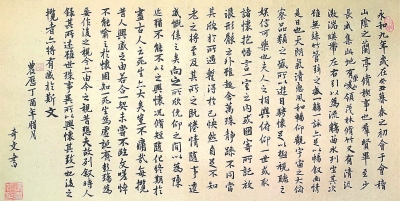 永和九年歲在癸丑暮春之初會于會稽
山陰之蘭亭脩禊事也羣賢畢至少
長咸集此地有崇山峻領茂林脩竹又有清
流激湍暎帶左右引以為流觴曲水列坐其次
雖無絲竹管弦之盛一觴一詠亦足以暢敘幽情
是日也天朗氣清惠風和暢仰觀宇宙之大俯
察品類之盛所以遊目騁懷足以極視聽之
娛信可樂也夫人之相與俯仰一世或取
諸懷抱悟言一室之內或因寄所託放
浪形骸之外雖趣舍萬殊靜躁不同當
其欣於所遇暫得於己快然自足不知
老之將至及其所之既惓情隨事遷
感慨係之矣向之所欣俛仰之間以為陳
迹猶不能不以之興懷況脩短隨化終期於
盡古人云死生亦大矣豈不痛哉每攬
昔人興感之由若合一契未嘗不臨文嗟悼
不能喻之於懷固知一死生為虛誕齊彭殤為
妄作後之視今亦由今之視昔悲夫故列敘時人
錄其所述雖世殊事異所以興懷其致一也後之
攬者亦將有感於斯文
農曆丁酉年腊月
奇文書